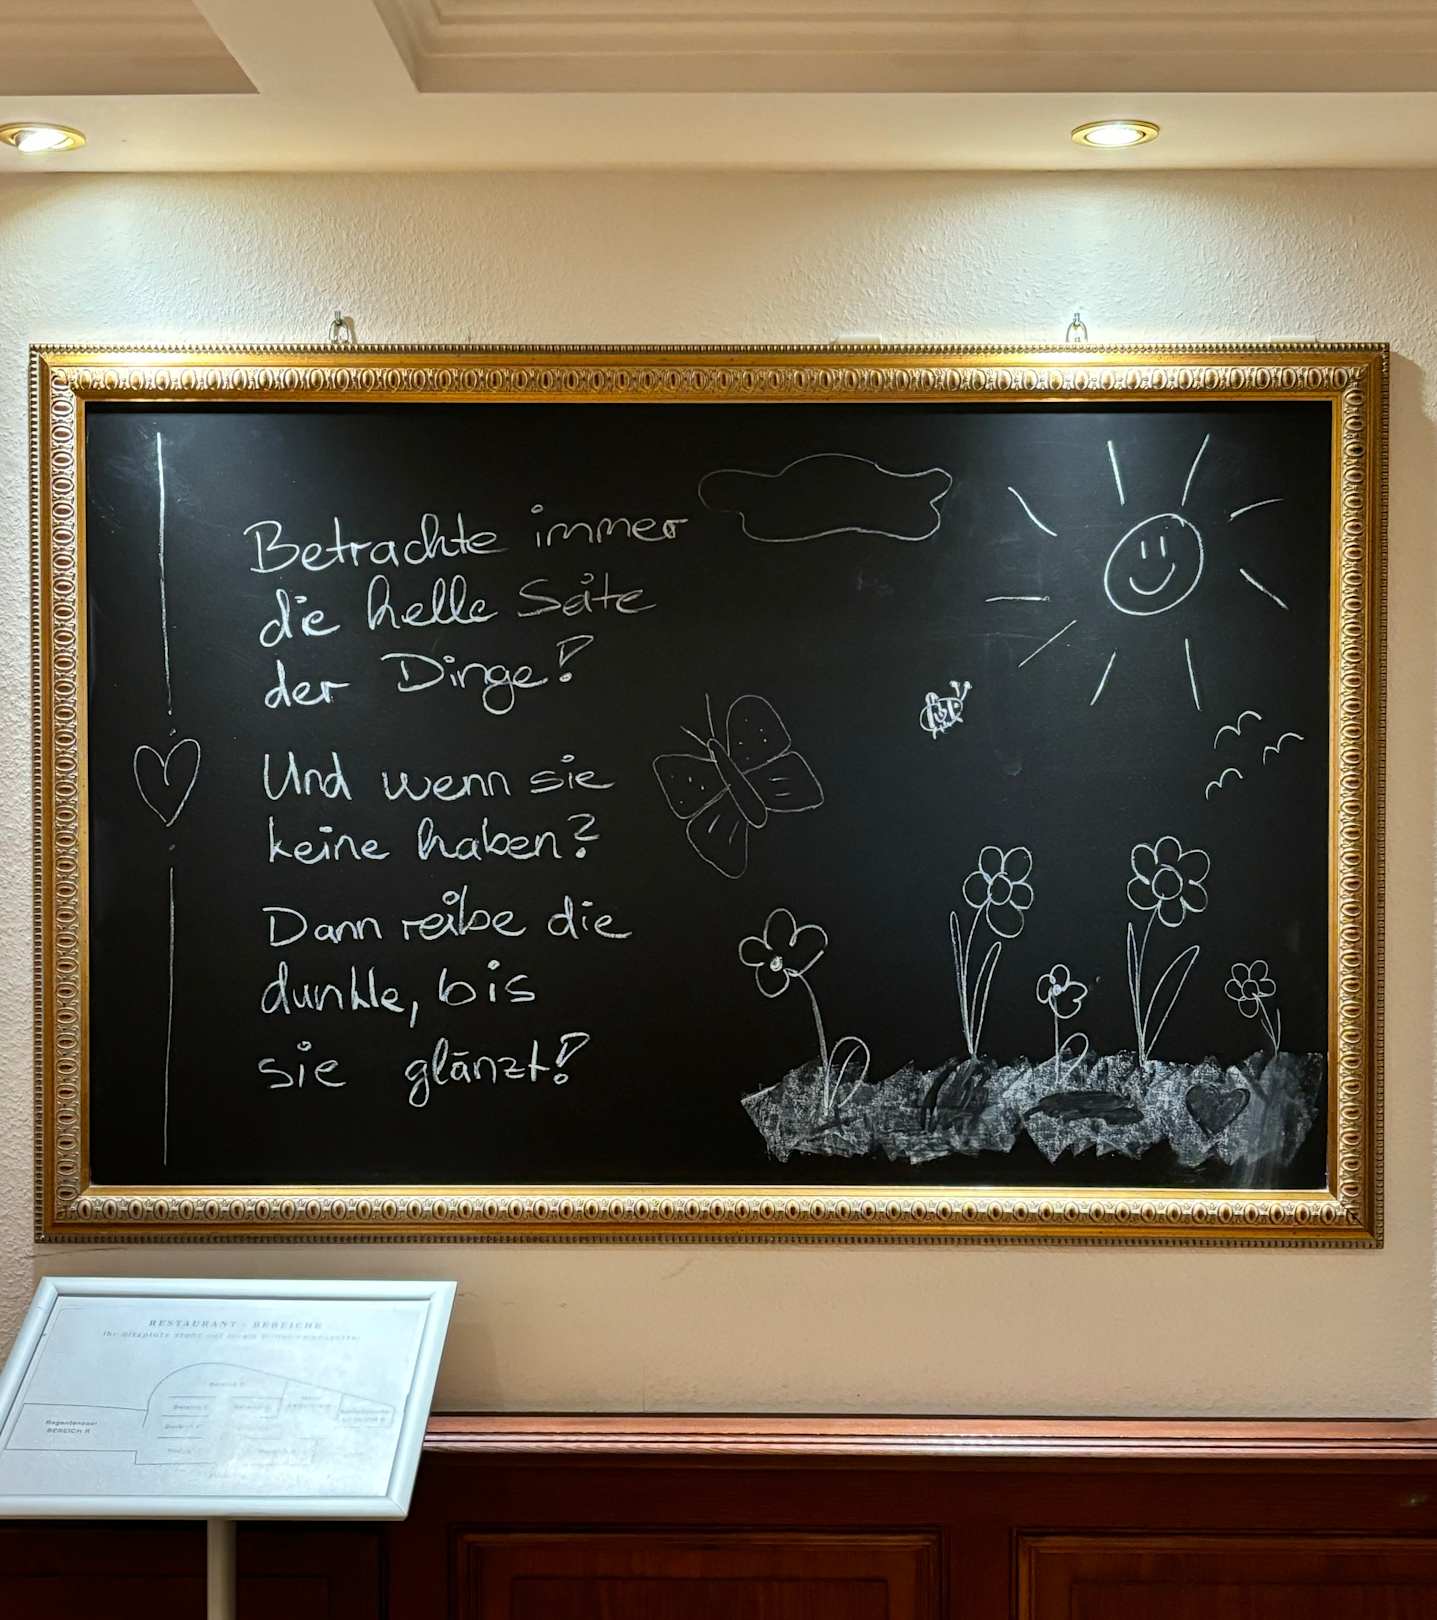 Betrachte immer
die helle Seite
der Dinge!
Und wenn sie
keine haben?
Dann reibe die
dunkle, bis
sie glänzt!
RESTAURANT - BEREICHE
BEREICH R